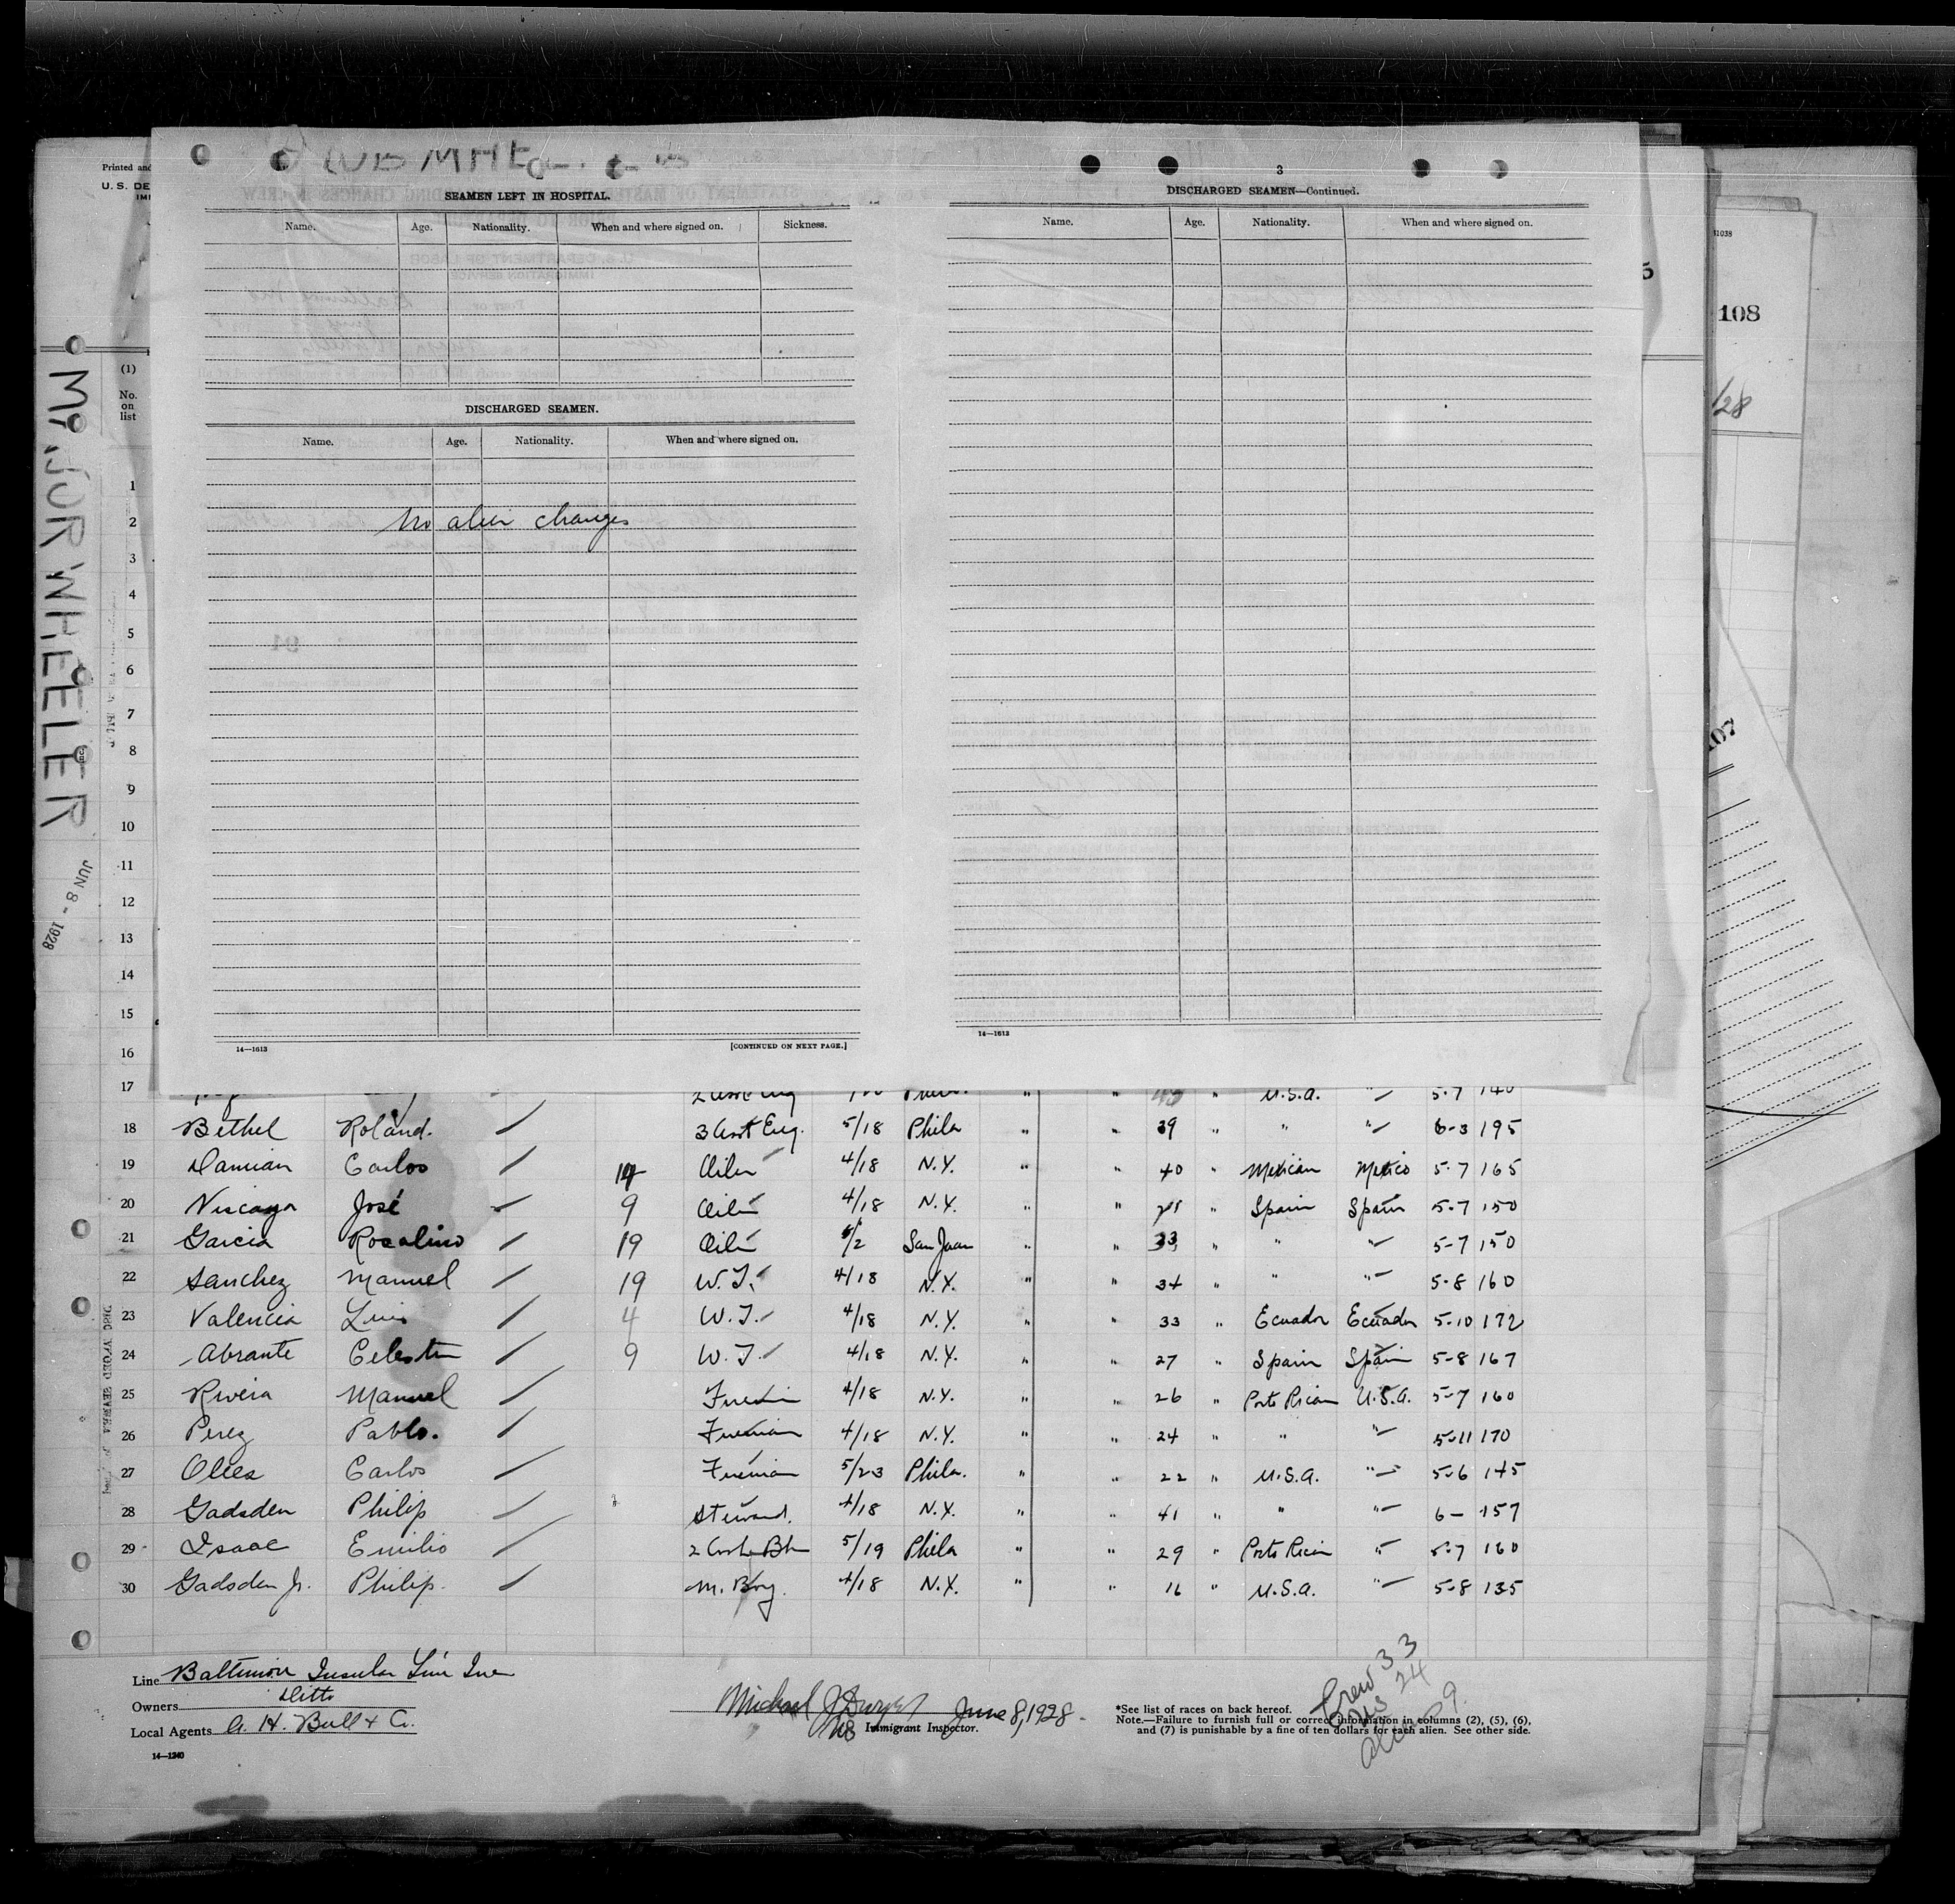 SEAMEN LEFT IN HOSPITAL.
Name. Age. Nationality. When and where signed on. Sickness.
DISCHARGED SEAMEN.
Name. Age. Nationality. When and where signed on.
No alien changes
14—1613 [CONTINUED ON NEXT PAGE.]
3
DISCHARGED SEAMEN—Continued.
Name. Age. Nationality. When and where signed on.
14—1613
Printed and
U. S. DE
IMI
(1)
No. on list
Mr. JOR WHEELER
JUN 8 - 1928
5
108
/28
107
1
2
3
4
5
6
7
8
9
10
11
12
13
14
15
16
17 " " " U.S.A. " 5-7 140
18 Bethel Roland. 3 Asst Eng. 5/18 Phila " " 39 " " " 6-3 195
19 Damian Carlos 14 Oiler 4/18 N.Y. " " 40 " Mexican Mexico 5-7 165
20 Viscaya José 9 Oiler 4/18 N.Y. " " " Spain Spain 5-7 150
21 Garcia Rosalino 19 Oiler 6/2 San Juan " " 33 " " " 5-7 150
22 Sanchez Manuel 19 W.T. 4/18 N.Y. " " 34 " " " 5-8 160
23 Valencia Luis 4 W.T. 4/18 N.Y. " " 33 " Ecuador Ecuador 5-10 172
24 Abrante Celestin 9 W.T. 4/18 N.Y. " " 27 " Spain Spain 5-8 167
25 Rivera Manuel Fireman 4/18 N.Y. " " 26 " Porto Rican U.S.A. 5-7 160
26 Perez Pablo. Fireman 4/18 N.Y. " " 24 " " " 5-11 170
27 Carlos Fireman 5/23 Phila. " " 22 " U.S.A. " 5-6 145
28 Gadsden Philip Steward. 4/18 N.Y. " " 41 " " " 6- 157
29 Isaac Emilio 5/19 Phila " " 29 " Porto Rican " 5-7 160
30 Gadsden Jr. Philip. M. Boy. 4/18 N.Y. " " 16 " U.S.A. " 5-8 135
Line Baltimore Insular Line Inc
Owners Ditto
Local Agents A. H. Bull & Co.
14—1240
Michael J. June 8, 1928.
Immigrant Inspector.
*See list of races on back hereof.
Note.—Failure to furnish full or correct information in columns (2), (5), (6),
and (7) is punishable by a fine of ten dollars for each alien. See other side.
Crew 33
US 24
Alien 9.